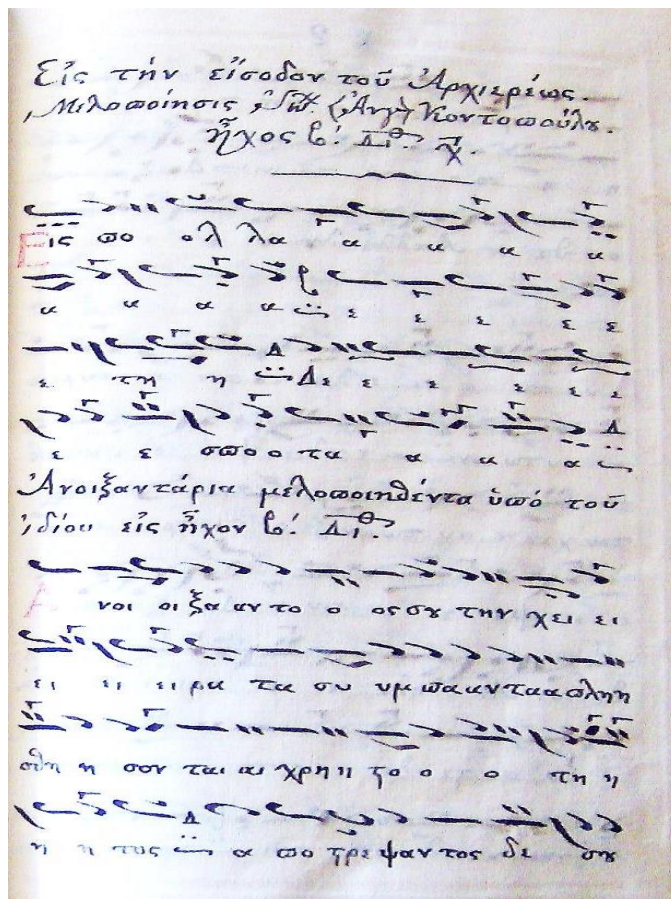 Εἰς τήν εἴσοδον τοῦ Ἀρχιερέως.
Μελοποίησις Ἀγγ. Κοντοπούλου.
ἦχος β΄. Δι.
Εις πο ολ λα α α α α
α α α α ε ε ε ε ε
ε τη η Δε ε ε ε ε
ε ε σπο ο τα α α α
Ἀνοιξαντάρια μελοποιηθέντα ὑπό τοῦ
ἰδίου εἰς ἦχον β΄. Δι.
Α νοι οι ξα αν το ο ος σου την χει ει
ει ει ει ρα τα συ υμ πα αν τα α πλη η
σθη η σον ται αι χρη η στο ο ο τη η
η η τος α πο στρε ψαν τος δε σου